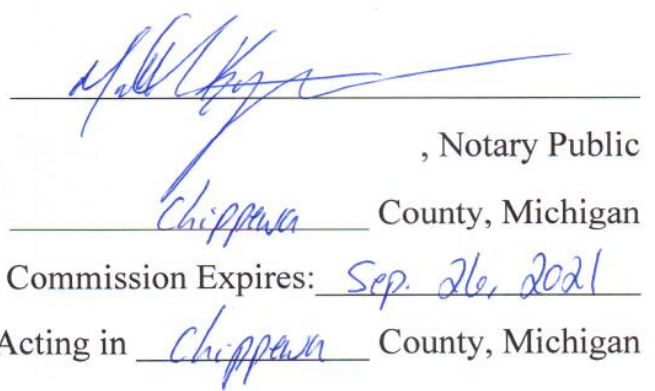 , Notary Public
Chippewa County, Michigan
Commission Expires: Sep. 26, 2021
Acting in Chippewa County, Michigan